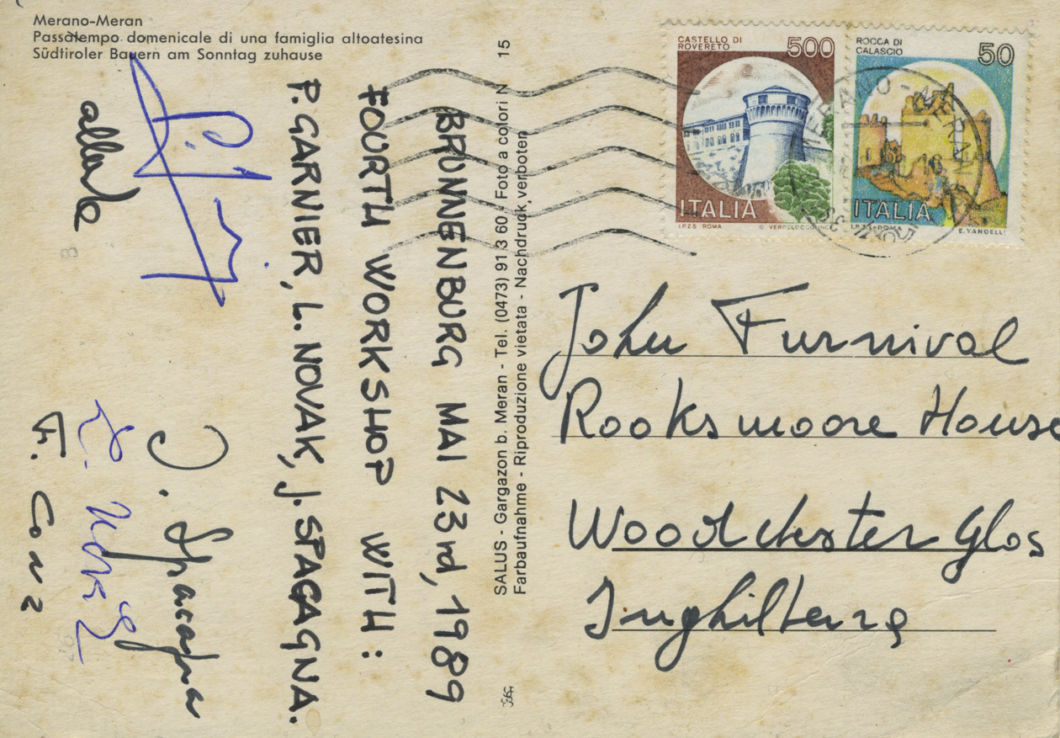 Merano-Meran
Passatempo domenicale di una famiglia altoatesina
Südtiroler Bauern am Sonntag zuhause
BRUNNENBURG MAI 23rd, 1989
FOURTH WORKSHOP WITH:
P. GARNIER, L. NOVAK, J. SPAGAGNA.
J. Spacagna
L. Novák
F. Conz
SALUS - Gargazon b. Meran - Tel. (0473) 91 3 60 - Foto a colori N 15
Farbaufnahme - Riproduzione vietata - Nachdruck verboten
CASTELLO DI
ROVERETO
500
ITALIA
I.P.Z.S. ROMA
ROCCA DI
CALASCIO
50
ITALIA
I.P.Z.S. ROMA
E. VANGELLI
John Furnival
Rooksmoore House
Woodchester Glos
Inghilterra